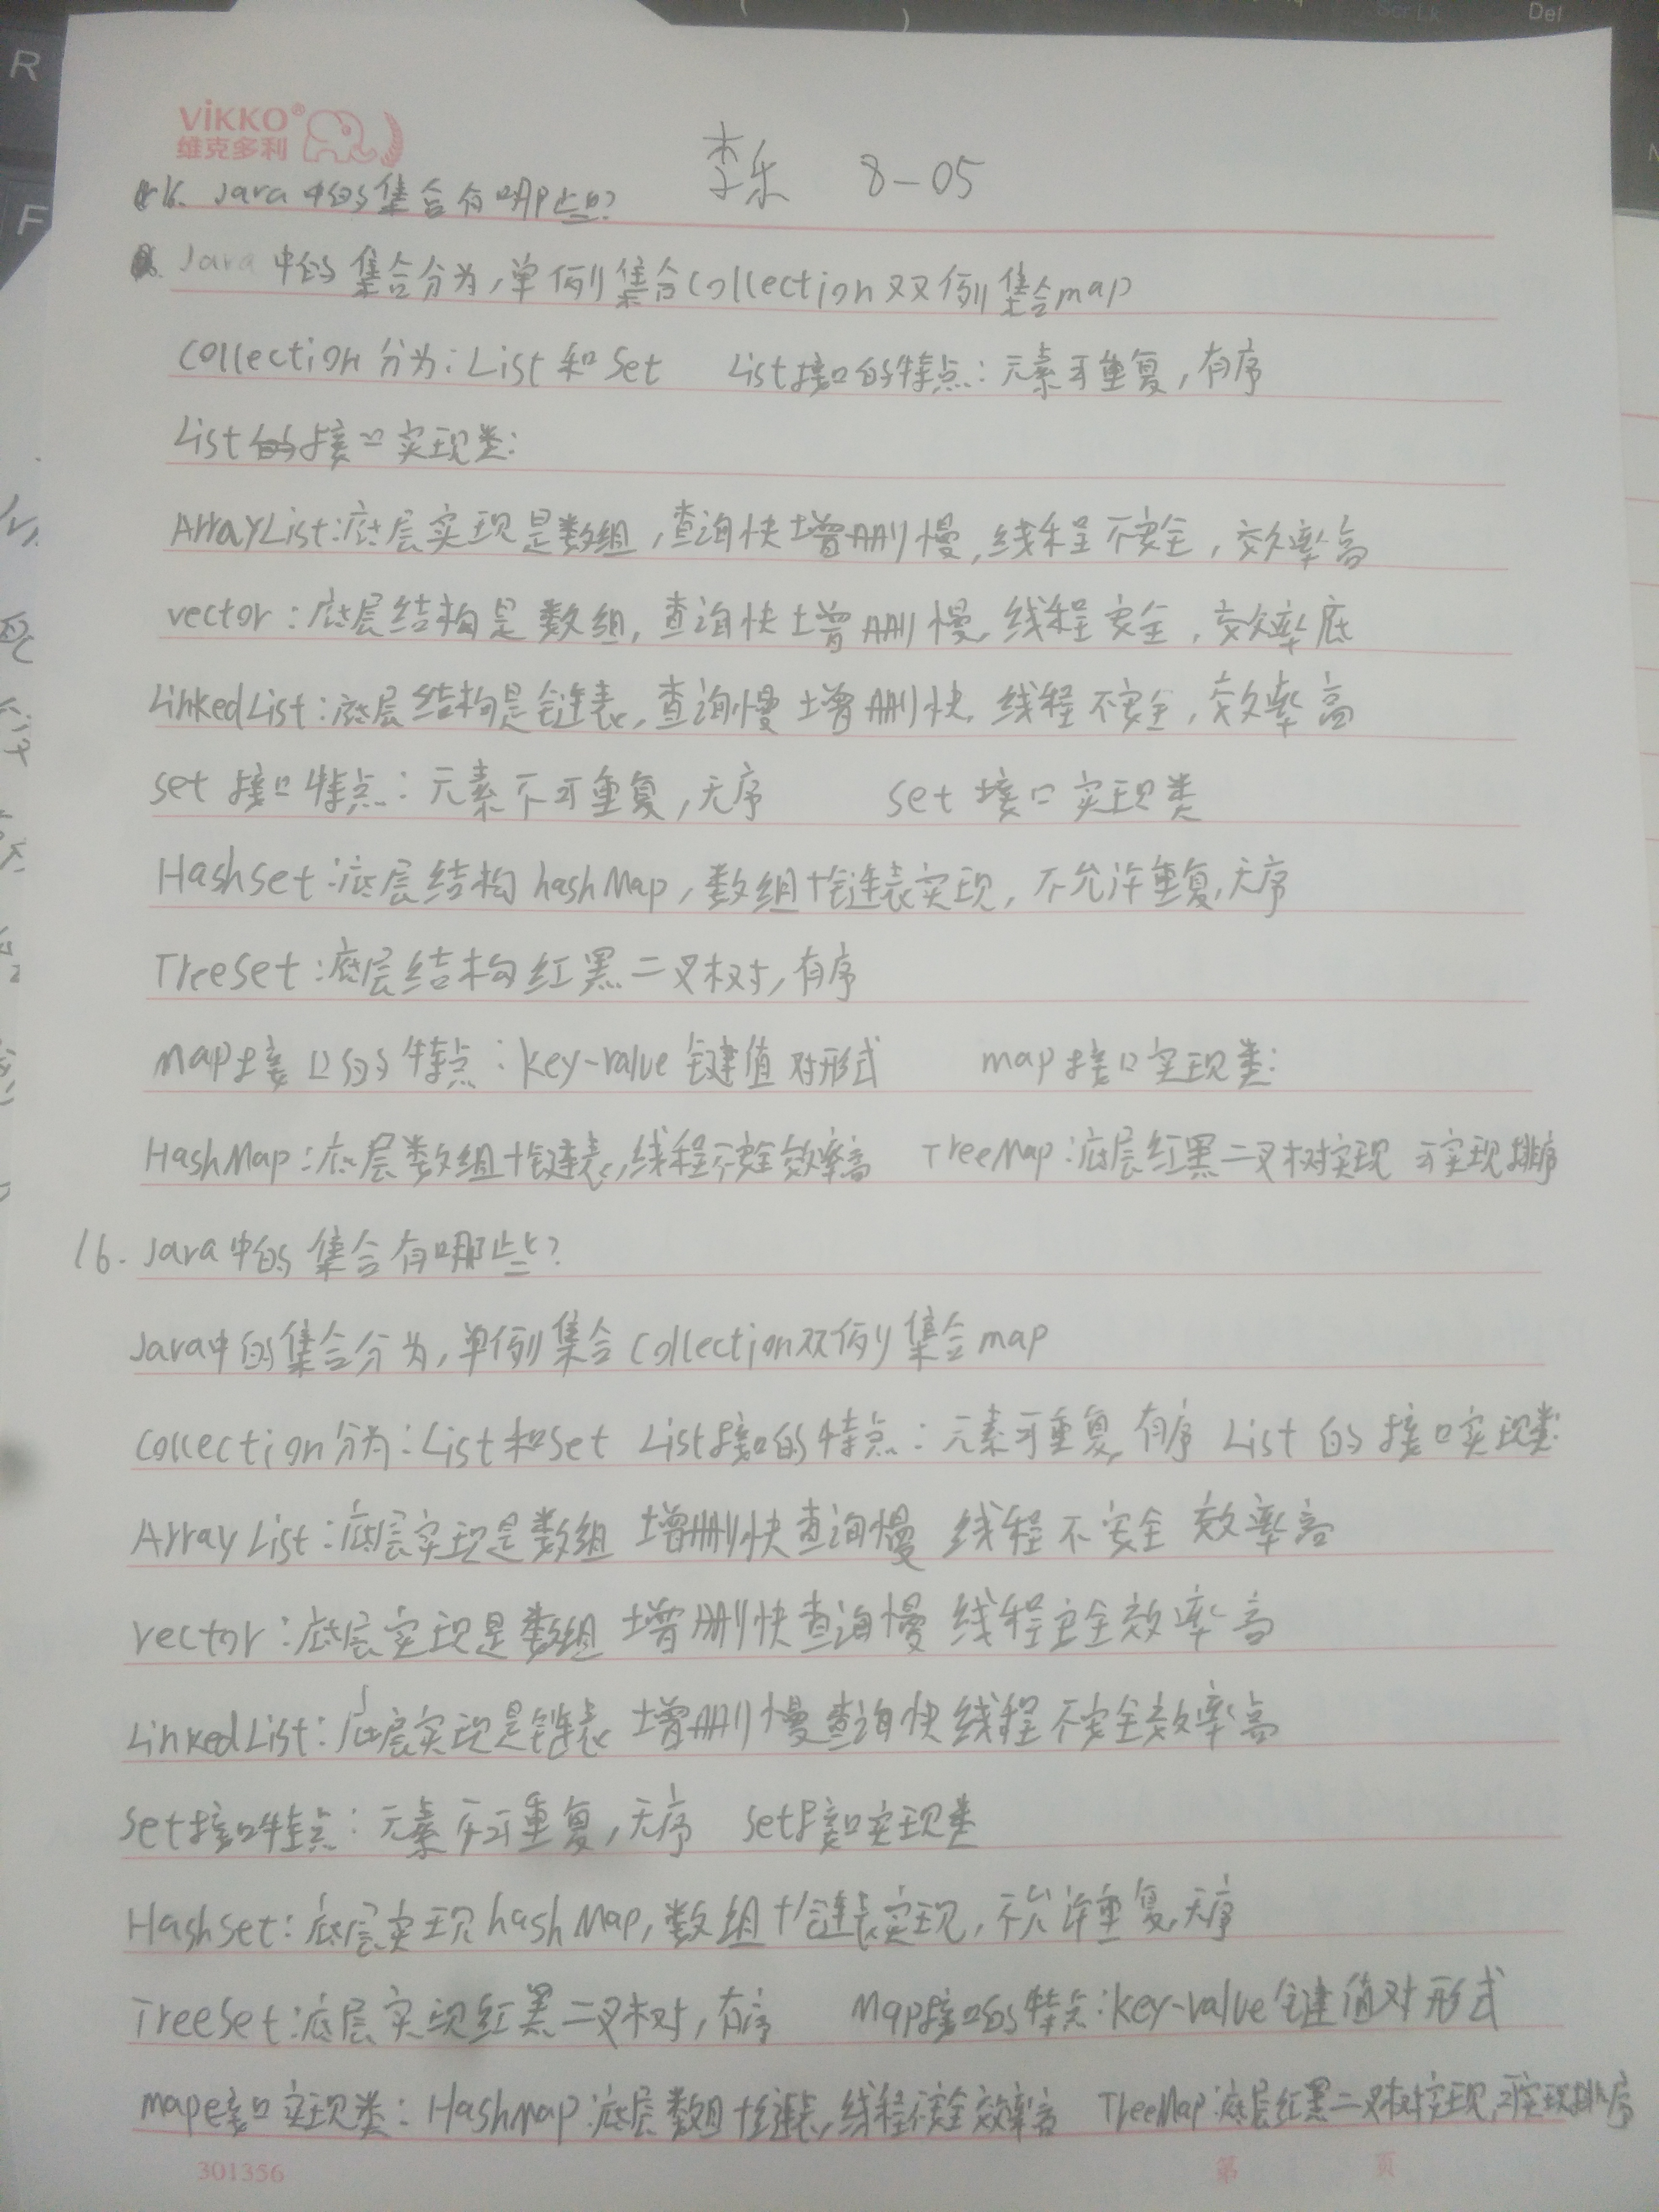 VIKKO®
维克多利
李乐 8-05
16. Java中的集合有哪些?
Java中的集合分为,单例集合Collection双例集合map
Collection分为:List和Set List接口的特点:元素可重复,有序
List的接口实现类:
ArrayList:底层实现是数组,查询快增删慢,线程不安全,效率高
vector:底层结构是数组,查询快增删慢,线程安全,效率底
LinkedList:底层结构是链表,查询慢增删快,线程不安全,效率高
set接口特点:元素不可重复,无序 set接口实现类
HashSet:底层结构hashMap,数组+链表实现,不允许重复,无序
TreeSet:底层结构红黑二叉树,有序
map接口的特点:key-value键值对形式 map接口实现类:
HashMap:底层数组+链表,线程不安全效率高 TreeMap:底层红黑二叉树实现 可实现排序
16. Java中的集合有哪些?
Java中的集合分为,单例集合Collection双例集合map
Collection分为:List和Set List接口的特点:元素可重复,有序 List的接口实现类:
ArrayList:底层实现是数组 增删快查询慢 线程不安全 效率高
vector:底层实现是数组 增删快查询慢 线程安全效率高
LinkedList:底层实现是链表 增删慢查询快 线程不安全效率高
set接口特点:元素不可重复,无序 set接口实现类
HashSet:底层实现hashMap,数组+链表实现,不允许重复,无序
TreeSet:底层实现红黑二叉树,有序 Map接口的特点:key-value键值对形式
map接口实现类:HashMap:底层数组+链表,线程不安全效率高 TreeMap:底层红黑二叉树实现,可实现排序
301356 第 页